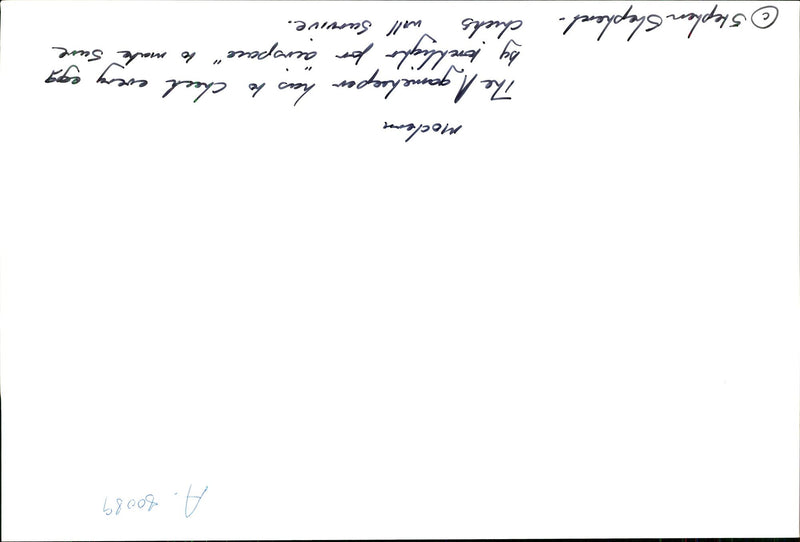 A. 80089
modern
The ^ gamekeeper has to check every egg
by torchlight for "airspace" to make sure
chicks will survive.
© Stephen Shepherd.